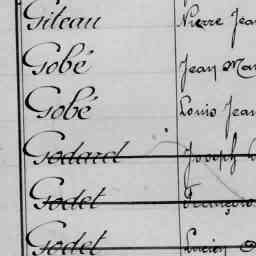 Gileau Pierre Jean
Gobé Jean Mar
Gobé Louis Jean
Godard Joseph
Godet François
Godet Lucien